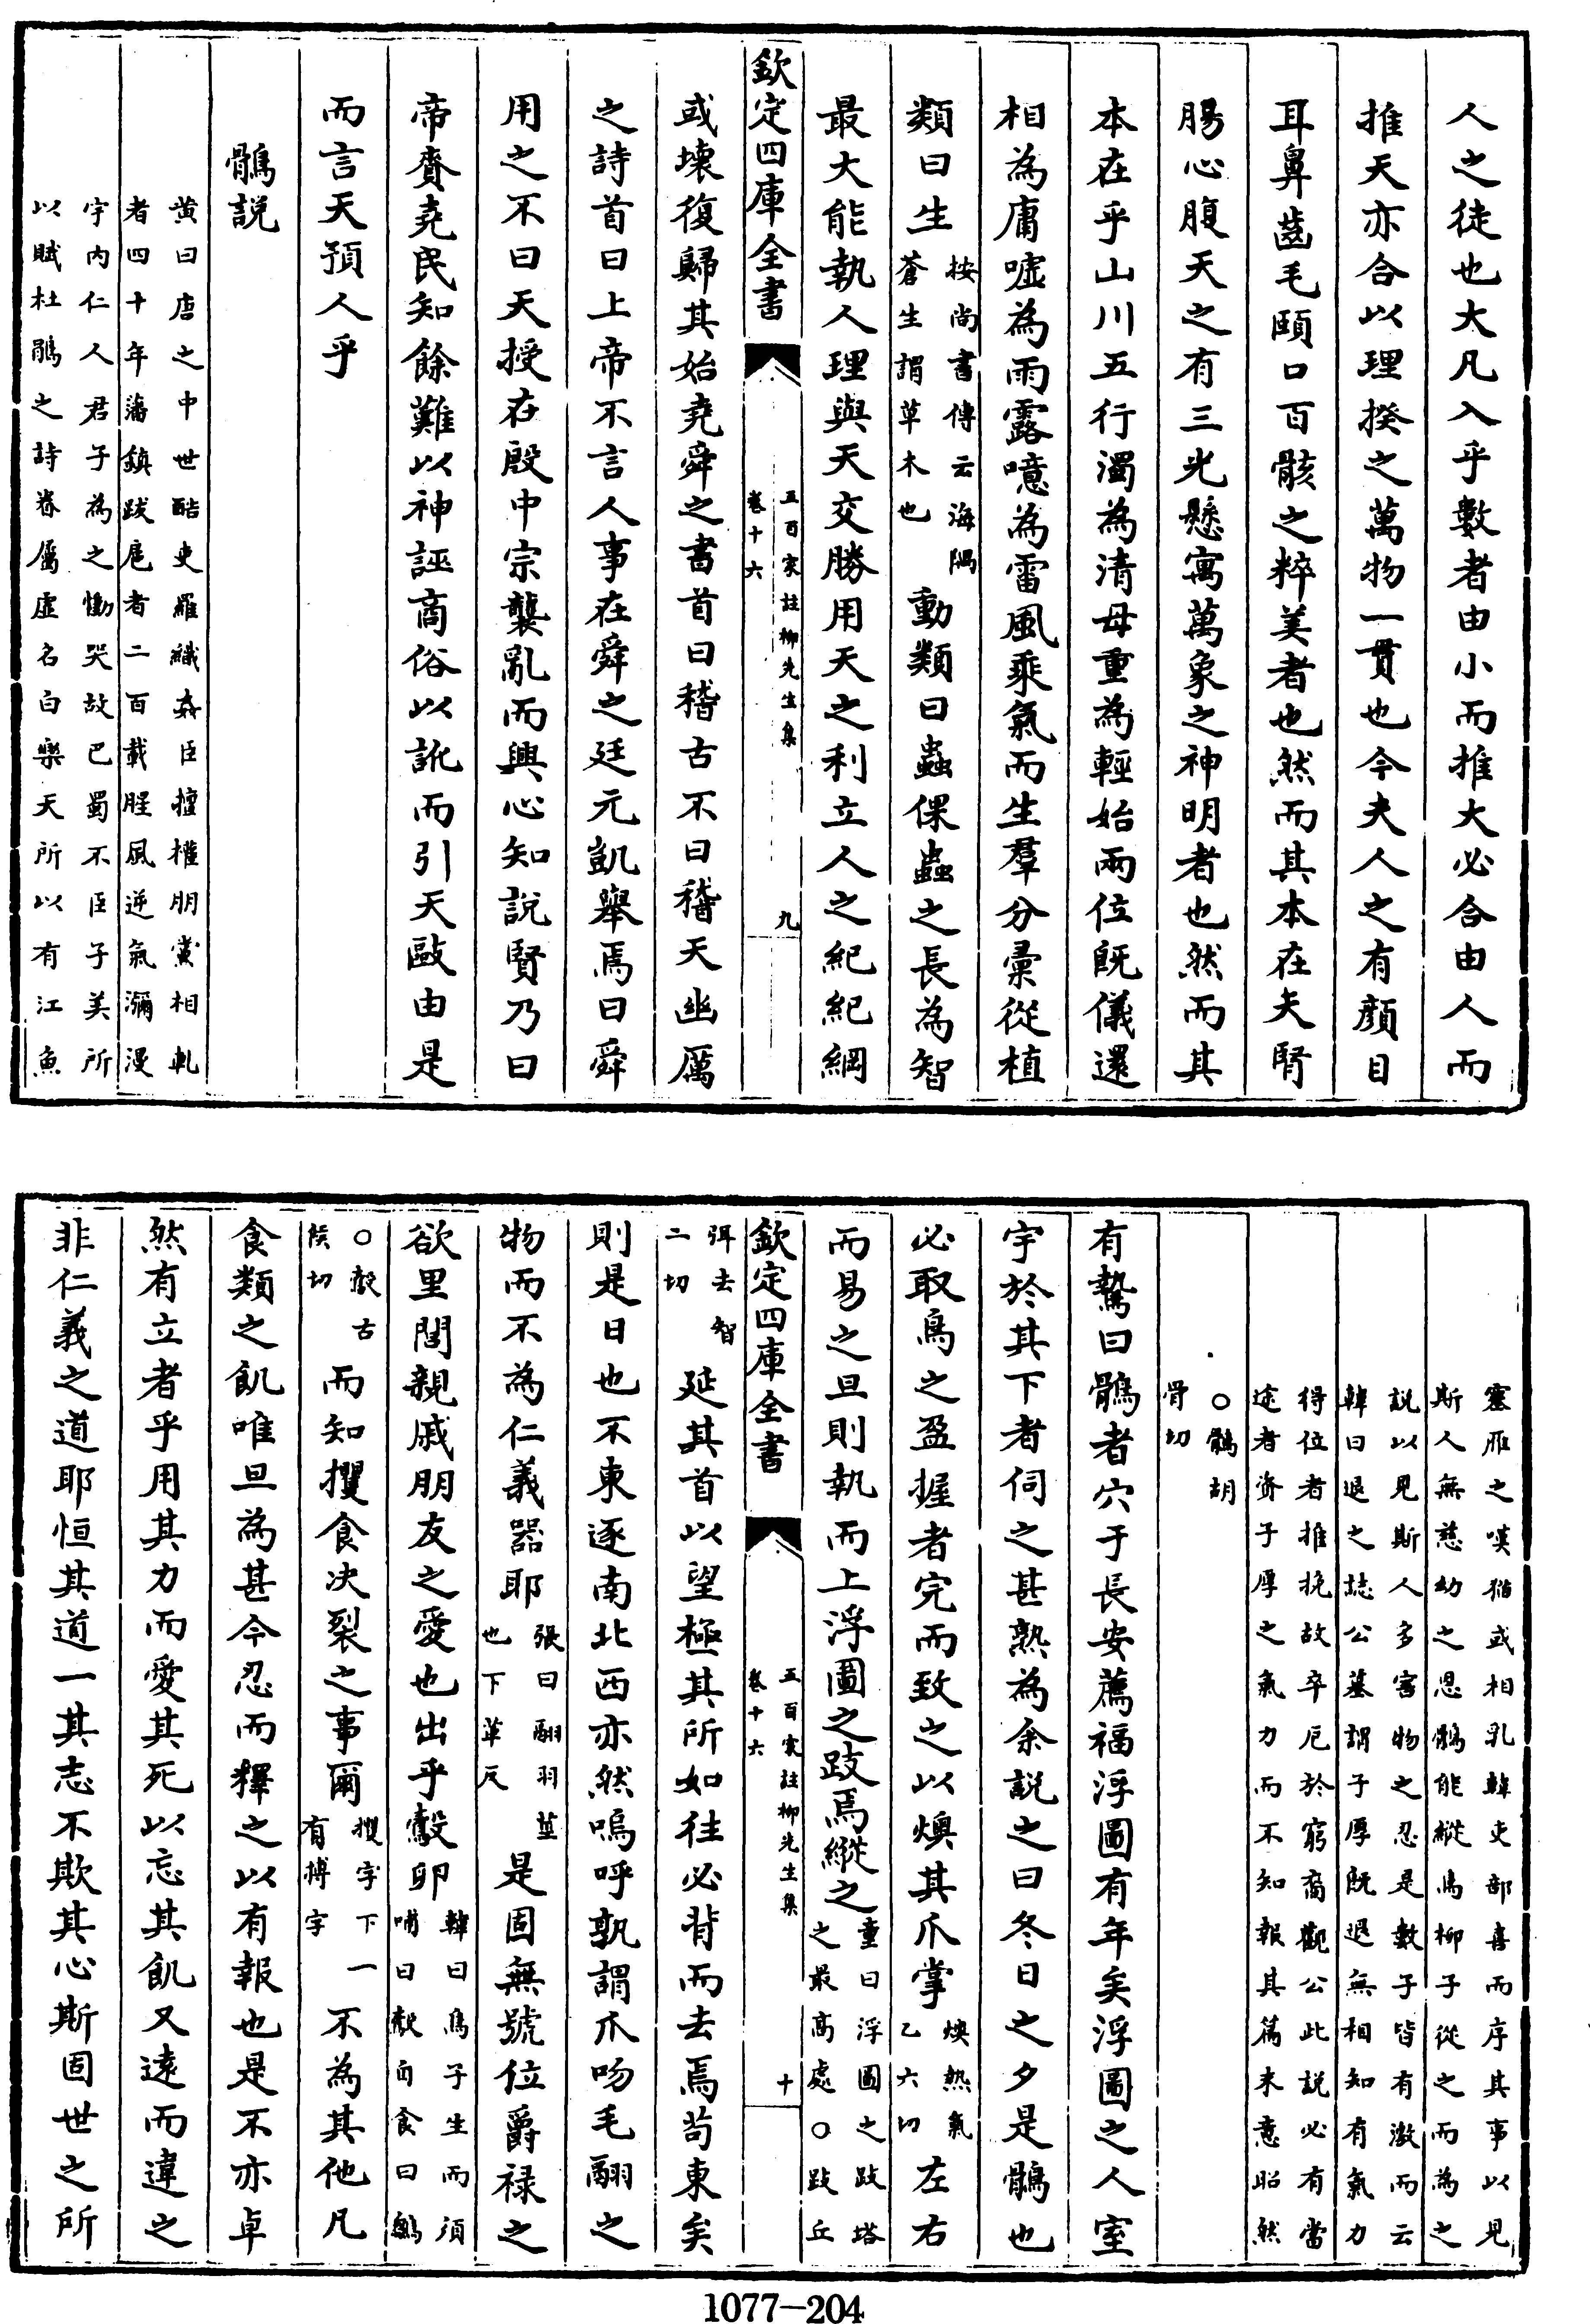 人之徒也大凡入乎數者由小而推大必合由人而
推天亦合以理揆之萬物一貫也今夫人之有顏目
耳鼻齒毛頤口百骸之粹美者也然而其本在夫腎
腸心腹天之有三光懸寓萬象之神明者也然而其
本在乎山川五行濁為清母重為輕始兩位既儀還
相為庸噓為雨露噫為雷風乘氣而生羣分彙從植
類曰生
按尚書傳云海隅
蒼生謂草木也
動類曰蟲倮蟲之長為智
最大能執人理與天交勝用天之利立人之紀紀綱
欽定四庫全書
五百家註柳先生集
卷十六
九
或壞復歸其始堯舜之書首曰稽古不曰稽天幽厲
之詩首曰上帝不言人事在舜之廷元凱舉焉曰舜
用之不曰天授在殷中宗襲亂而興心知說賢乃曰
帝賚堯民知餘難以神誣商俗以訛而引天敺由是
而言天預人乎
鶻説
黄曰唐之中世酷吏羅織姦臣擅權朋黨相軋
者四十年藩鎮跋扈者二百載腥風逆氣瀰漫
宇内仁人君子為之慟哭故巴蜀不臣子美所
以賦杜鵑之詩眷屬虛名白樂天所以有江魚
塞雁之嘆猫或相乳韓吏部喜而序其事以見
斯人無慈幼之恩鶻能縱鳥柳子從之而為之
説以見斯人多害物之忍是數子皆有激而云
韓曰退之誌公墓謂子厚既退無相知有氣力
得位者推挽故卒厄於窮裔觀公此説必有當
途者資子厚之氣力而不知報其篇末意昭然
○鶻胡
骨切
有鷙曰鶻者穴于長安薦福浮圖有年矣浮圖之人室
宇於其下者伺之甚熟為余説之曰冬日之夕是鶻也
必取鳥之盈握者完而致之以燠其爪掌
燠熱氣
乙六切
左右
而易之旦則執而上浮圖之跂焉縱之
童曰浮圖之跂塔
之最高處○跂丘
欽定四庫全書
五百家註柳先生集
卷十六
十
弭去智
二切
延其首以望極其所如往必背而去焉苟東矣
則是日也不東逐南北西亦然嗚呼孰謂爪吻毛翮之
物而不為仁義器耶
張曰翮羽莖
也下革反
是固無號位爵禄之
欲里閭親戚朋友之愛也出乎鷇卵
韓曰鳥子生而須
哺曰鷇自食曰鶵
○鷇古
侯切
而知攫食决裂之事爾
攫字下一
有搏字
不為其他凡
食類之飢唯旦為甚今忍而釋之以有報也是不亦卓
然有立者乎用其力而愛其死以忘其飢又遠而違之
非仁義之道耶恒其道一其志不欺其心斯固世之所
1077—204